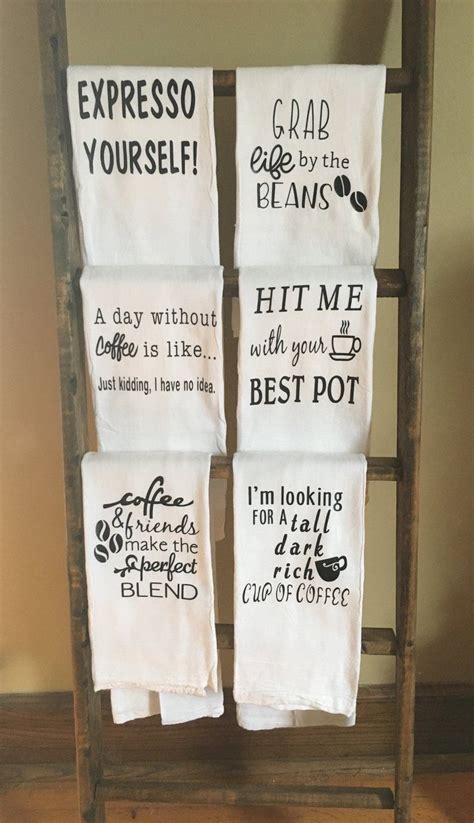 EXPRESSO
YOURSELF!
GRAB
life by the
BEANS
A day without
Coffee is like...
Just kidding, I have no idea.
HIT ME
with your
BEST POT
coffee
& friends
make the
perfect
BLEND
I'm looking
FOR A tall
dark
rich
CUP OF COFFEE